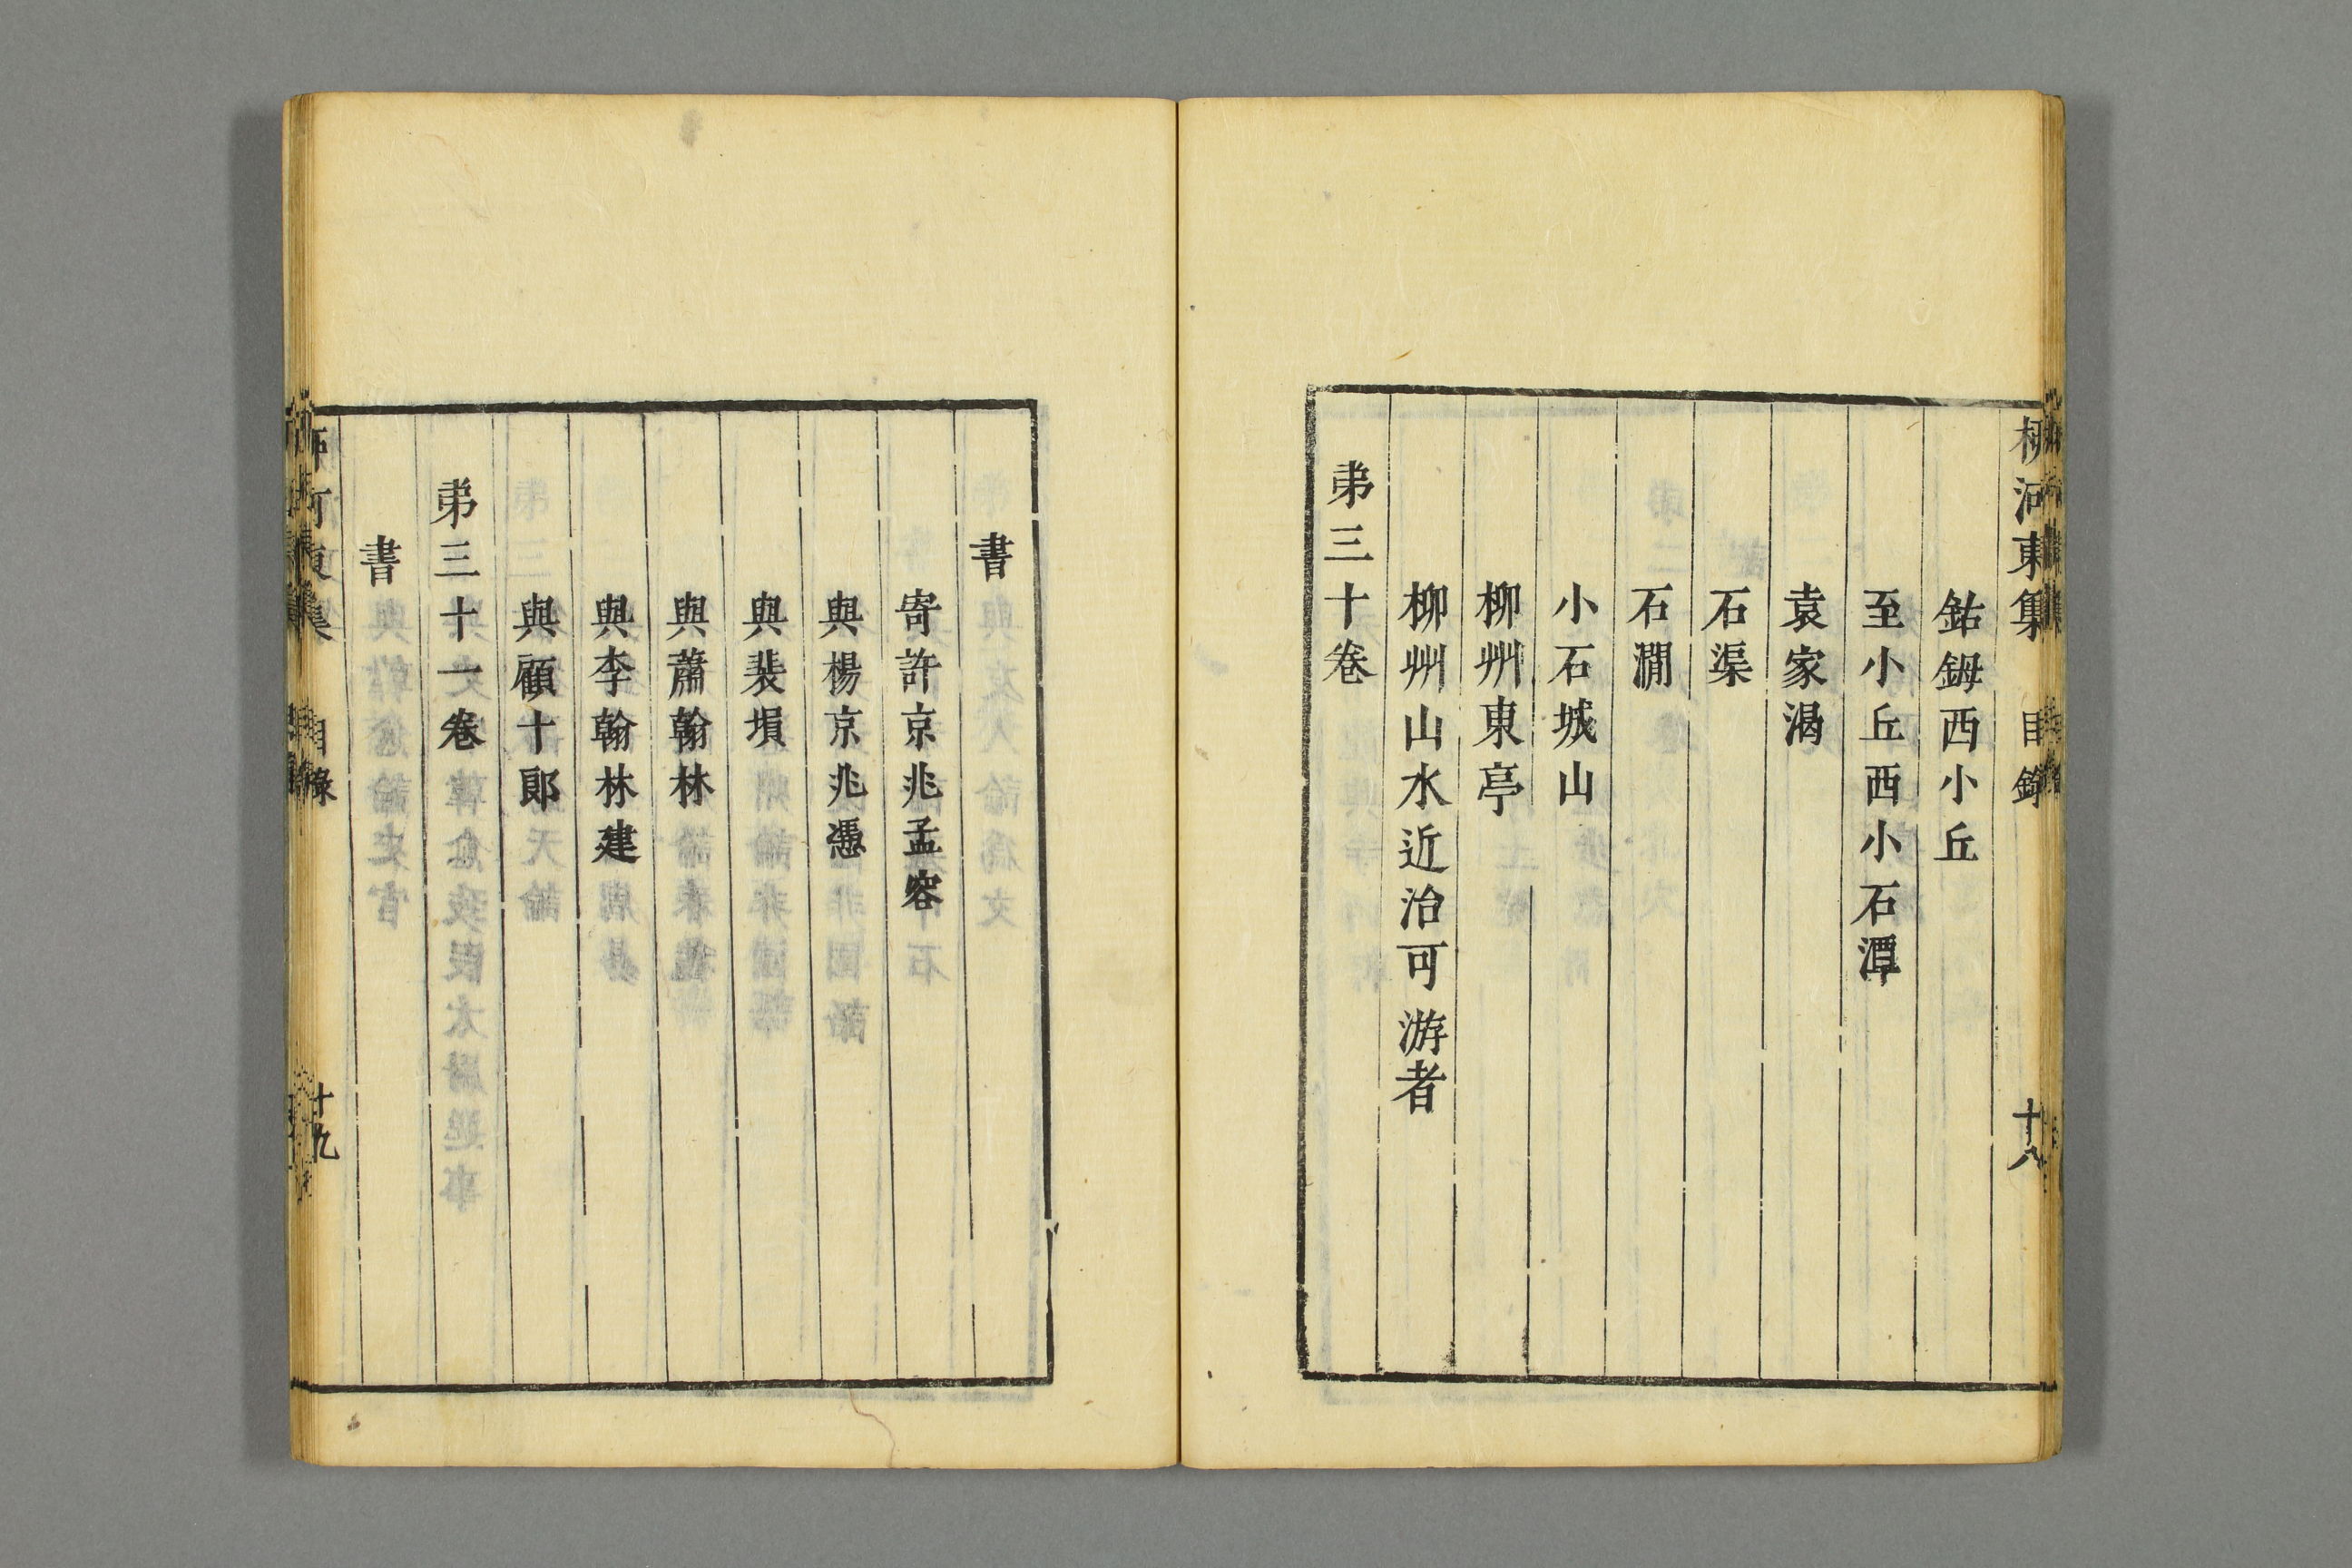 柳河東集 目錄 十八
鈷鉧西小丘
至小丘西小石潭
袁家渴
石渠
石澗
小石城山
柳州東亭
柳州山水近治可游者
弟三十卷
書
寄許京兆孟容
與楊京兆憑
與裴塤
與蕭翰林
與李翰林建
與顧十郎
弟三十一卷
書
柳河東集 目錄 十九